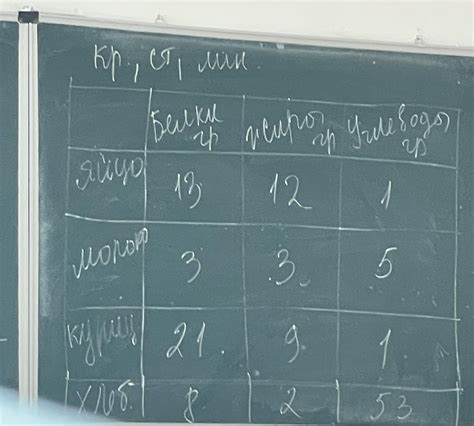 кр., ст, мин.
Белки гр жиры гр Углеводы гр
яйцо 13 12 1
молоко 3 3 5
куриц 21 9 1
хлеб 8 2 53